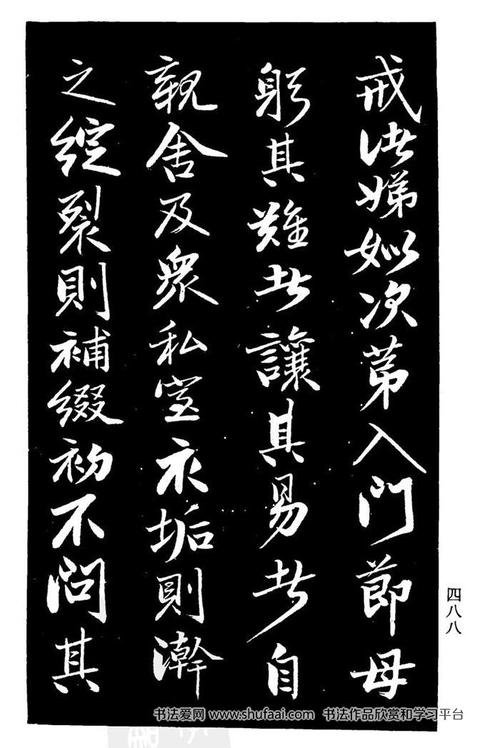 戒諸娣姒次苐入門節母
躬其難者讓其易者自
親舍及眾私室衣垢則澣
之綻裂則補綴初不問其
四八八
书法爱网 www.shufaai.com 书法作品欣赏和学习平台